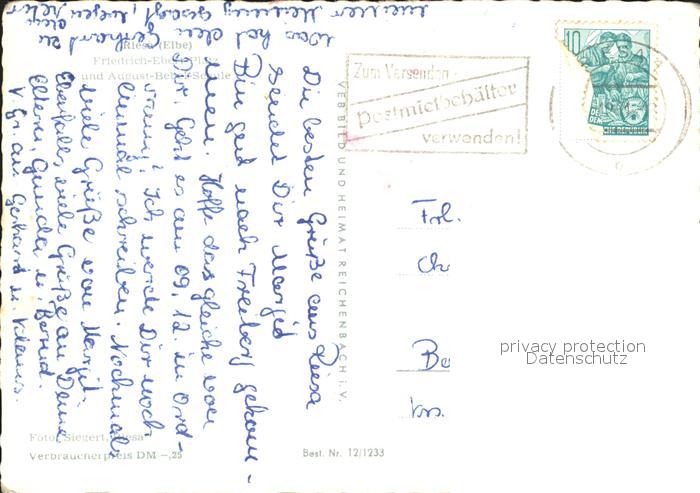 Riesa (Elbe)
Friedrich-Ebert-Platz
und August-Bebel-Schule
Die besten Grüße aus Riesa
sendet Dir Margit
Bin gut nach Freiberg gekom-
men. Hoffe das gleiche von
Dir. Geht es am 09.12. in Ord-
nung? Ich werde Dir noch
einmal schreiben. Nochmals
viele Grüße von Margit.
Ebenfalls viele Grüße an Deine
Eltern, Gunda u. Bernd.
V. Gr. an Gerhard u. Klaus.
Was hat den Gerhard zu
gesagt, wegen
meiner Meinung
VEB BILD UND HEIMAT REICHENBACH i. V.
Zum Versenden
Postmietbehälter
verwenden!
10
DEUTSCHE DEMOKRATISCHE REPUBLIK
Frl.
Ch
Be
Krs.
privacy protection
Datenschutz
Foto: Siegert, Riesa
Verbraucherpreis DM -,25
Best. Nr. 12/1233